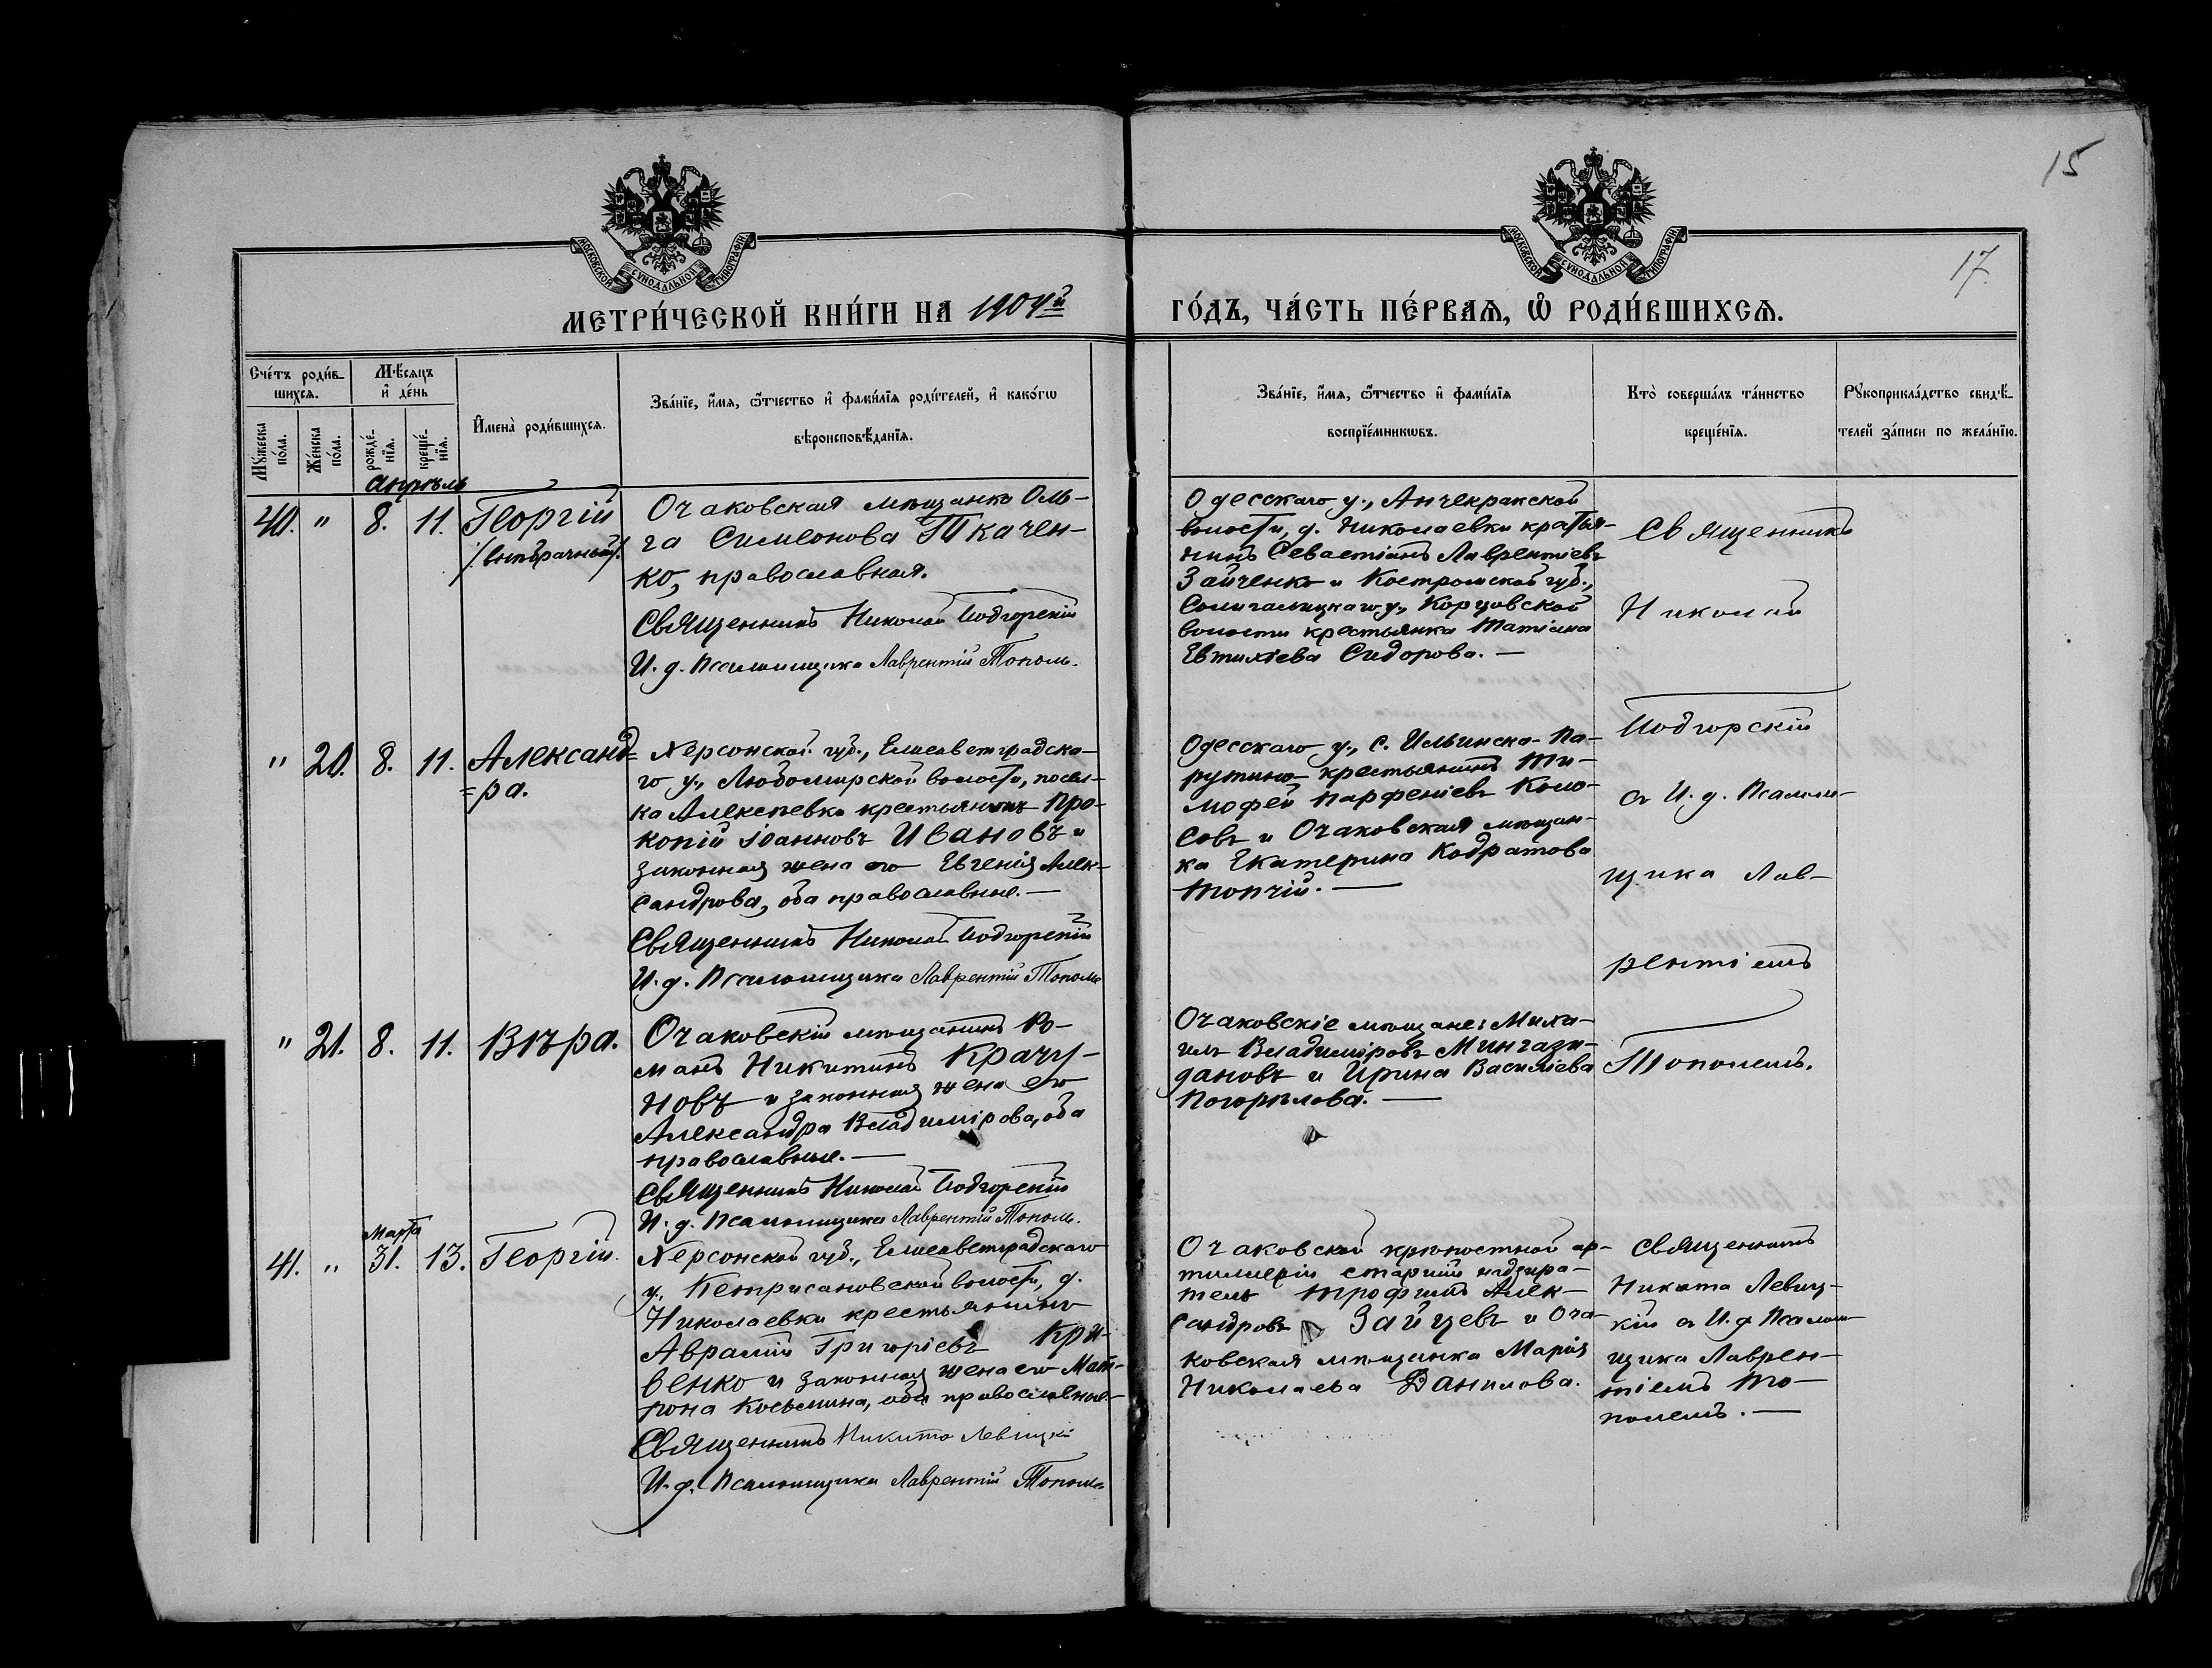 15
17
МОСКОВСКОЙ СѴНОДАЛЬНОЙ ТИПОГРАФІИ
МОСКОВСКОЙ СѴНОДАЛЬНОЙ ТИПОГРАФІИ
МЕТРИ́ЧЕСКОЙ КНИ́ГИ НА 1904й
ГО́ДЪ, ЧА́СТЬ ПЕ́РВАЯ, Ѽ РОДИ́ВШИХСЯ.
Сче́тъ роди́в-
шихся.
Мꙋ́жеска по́ла.
Же́нска по́ла.
Мѣ́сяцъ
и҆ де́нь
рожде́-
нїя.
креще́-
нїя.
И҆мена̀ роди́вшихся.
Зва́нїе, и҆́мя, ѻ҆́тчество и҆ фами́лїя роди́телей, и҆ како́гѡ
вѣроисповѣ́данїя.
Зва́нїе, и҆́мя, ѻ҆́тчество и҆ фами́лїя
воспрїе́мникѡвъ.
Кто̀ соверша́лъ та́инство
креще́нїя.
Рꙋкоприкла́дство свидѣ́-
телей за́писи по жела́нїю.
Апрѣль
40. " 8. 11. Георгій
/внѣбрачный/.
Очаковская мѣщанка Оль-
га Симеонова Ткачен-
ко, православная.
Священникъ Николай Подгорскій
И. д. Псаломщика Лаврентій Тополь.
Одесскаго у., Анчекракской
волости, д. Николаевки крестья-
нинъ Севастіанъ Лаврентіевъ
Зайченко и Костромской губ.,
Солигаличскаго у., Корцовской
волости крестьянка Татіана
Евтихіева Сидорова. —
Священникъ
Николай
Подгорскій
съ И. д. Псалом-
щика Лав-
рентіемъ
Тополемъ.
" 20. 8. 11. Александ=
=ра.
Херсонской губ., Елисаветградска-
го у., Любомирской волости, посел-
ка Алексѣевки крестьянинъ Про-
копій Іоанновъ Ивановъ и
законная жена его Евгенія Алек-
сандрова, оба православные. —
Священникъ Николай Подгорскій
И. д. Псаломщика Лаврентій Тополь
Одесскаго у., с. Ильинско-Па-
рутино крестьянинъ Ти-
мофей Парфеніевъ Коло-
совъ и Очаковская мѣщан-
ка Екатерина Кодратова
Топчій. —
" 21. 8. 11. Вѣра.
Очаковскій мѣщанинъ Ро-
манъ Никитинъ Крачу-
новъ и законная жена его
Александра Владимірова, оба
православные. —
Священникъ Николай Подгорскій
И. д. Псаломщика Лаврентій Тополь.
Очаковскіе мѣщане: Миха-
илъ Владиміровъ Мингази-
дановъ и Ирина Василіева
Погорѣлова. —
Марта
41. " 31. 13. Георгій.
Херсонской губ., Елисаветградскаго
у. Кетрисановской волости, д.
Николаевки крестьянинъ
Аврамій Григоріевъ Кри-
венко и законная жена его Мат-
рона Косьмина, оба православные —
Священникъ Никита Левицкій
И. д. Псаломщика Лаврентій Тополь
Очаковской крѣпостной ар-
тиллеріи старшій надзира-
тель Трофимъ Алек-
сандровъ Зайцевъ и Оча-
ковская мѣщанка Марія
Николаева Данилова.
Священникъ
Никита Левиц-
кій съ И. д. Псалом-
щика Лаврен-
тіемъ То-
полемъ. —